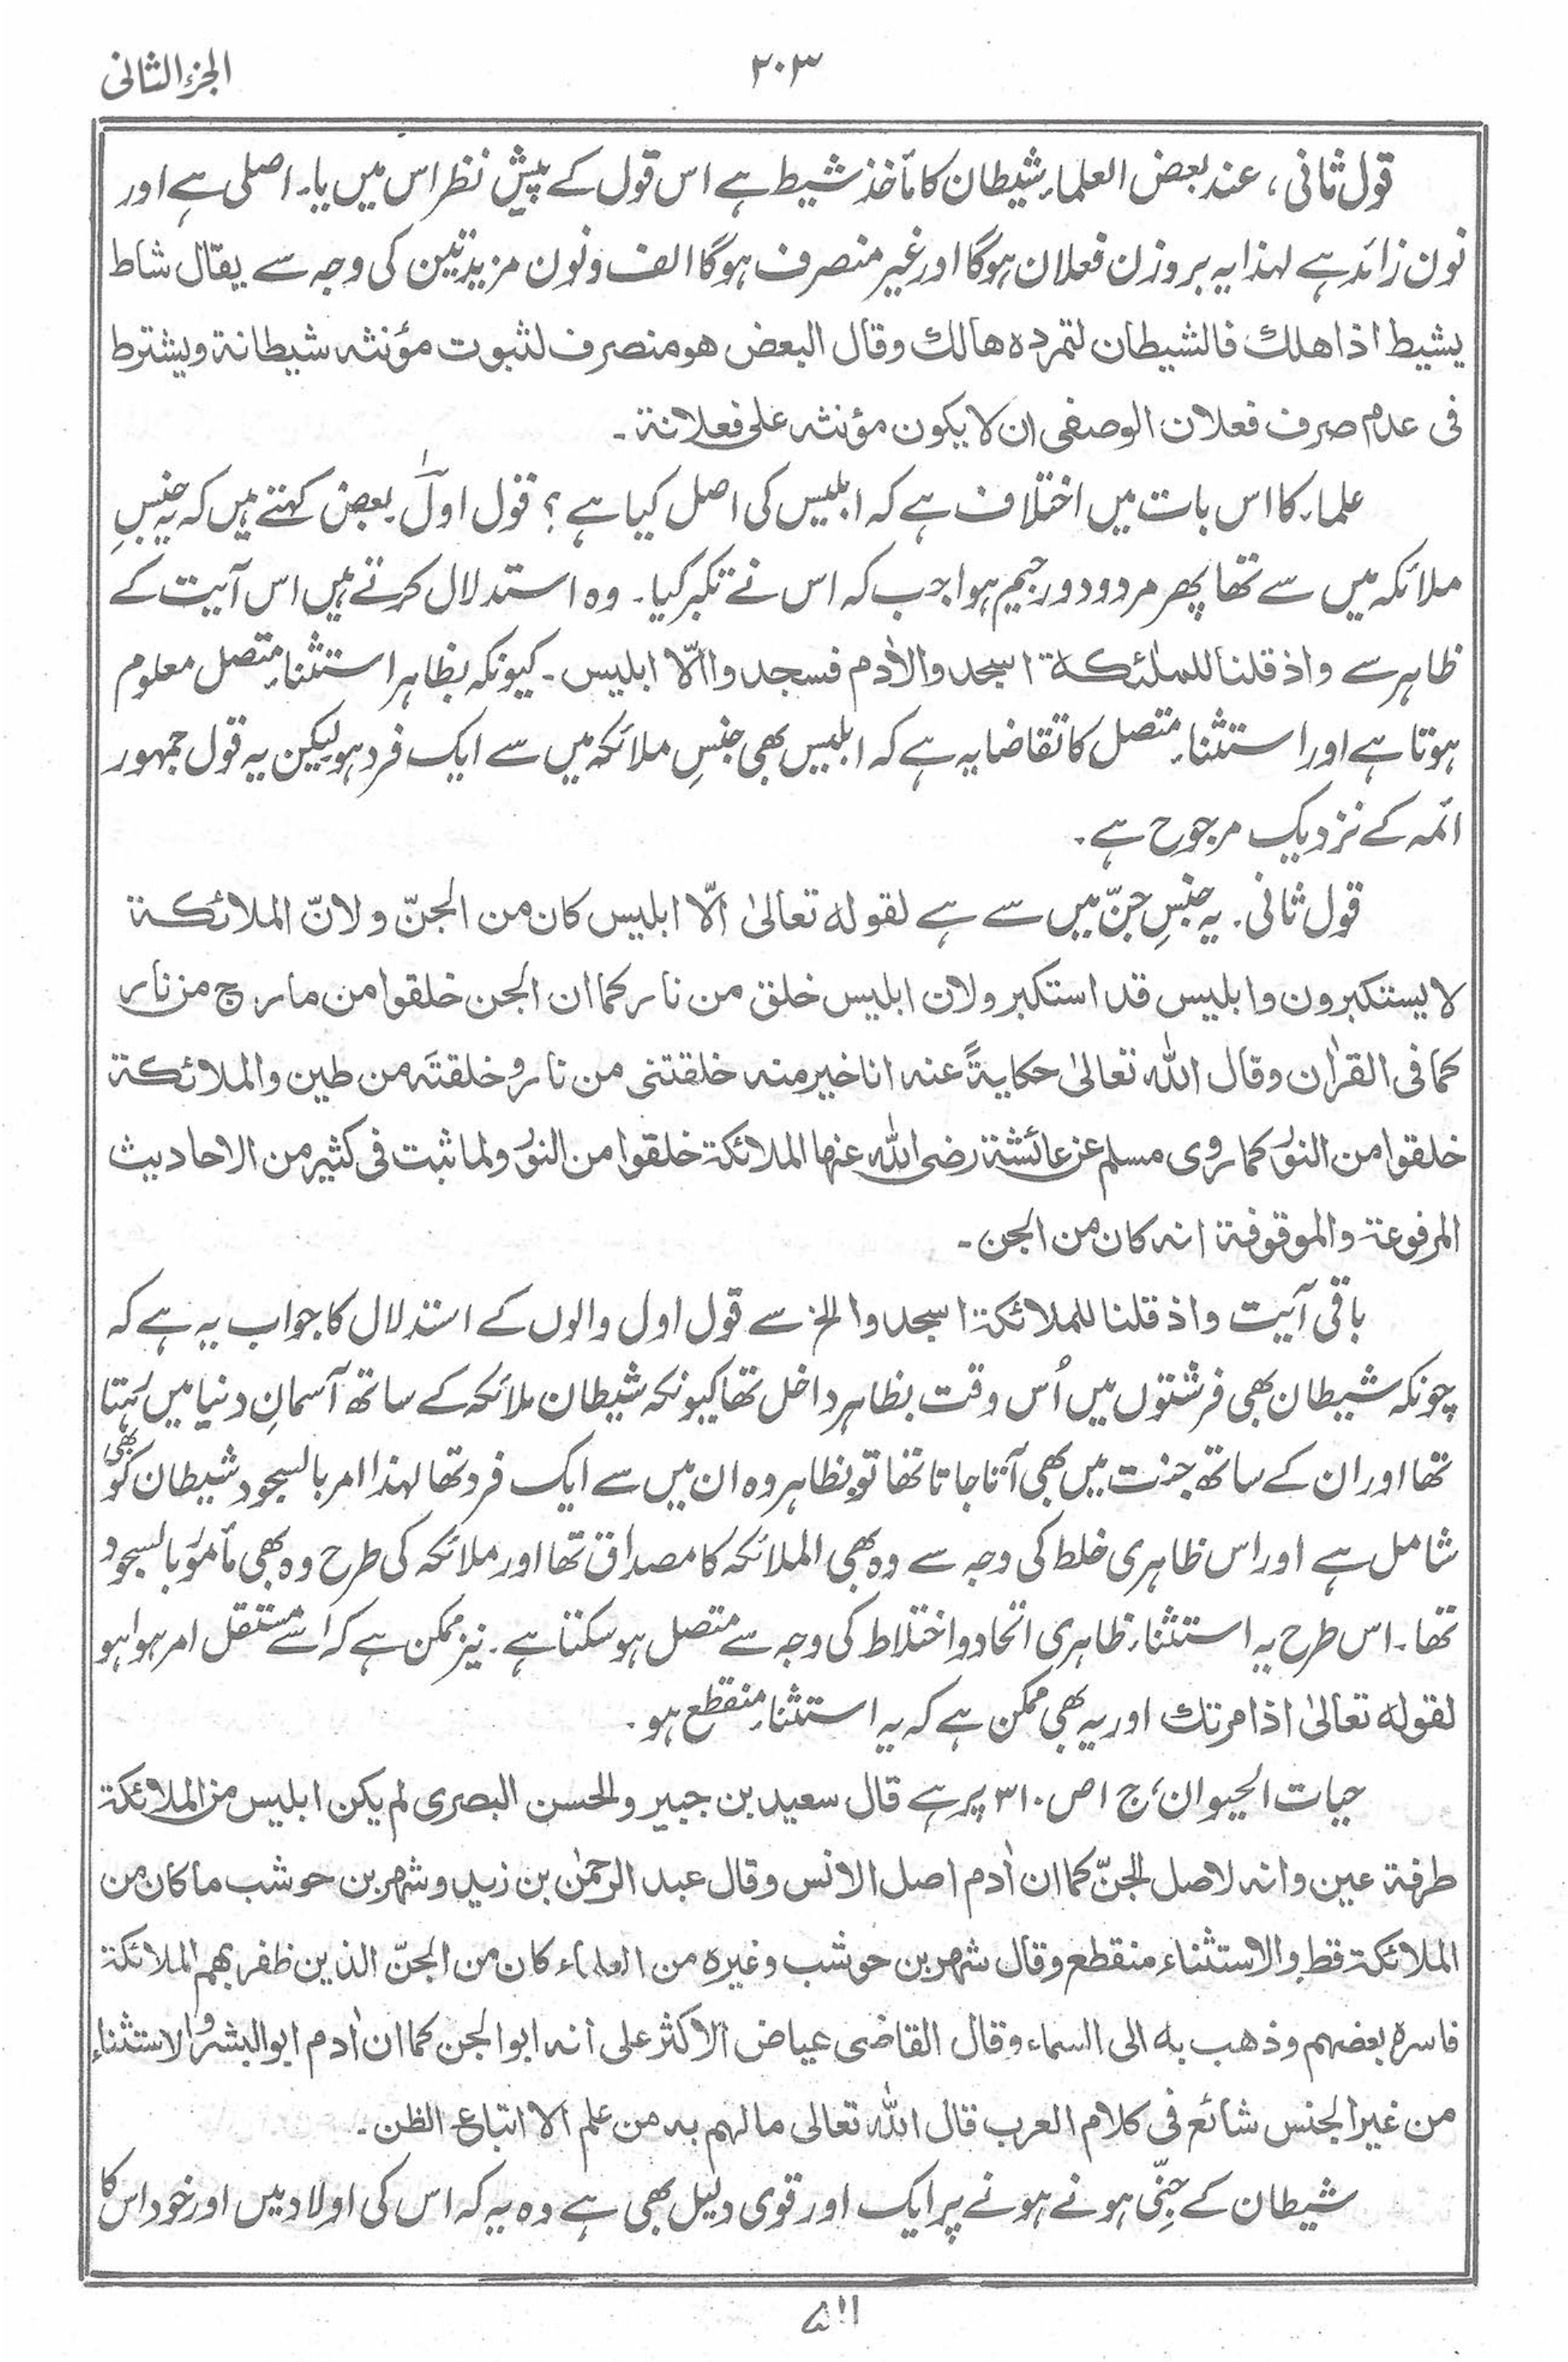 الجزء الثانی
۲۰۳
قول ثانی، عند بعض العلماء شیطان کا مأخذ شیط ہے اس قول کے پیش نظر اس میں یاء اصلی ہے اور
نون زائد ہے لہذا یہ بروزن فعلان ہوگا اور غیر منصرف ہوگا الف و نون مزیدتین کی وجہ سے یقال شاط
یشیط اذا هلك فالشیطان لتمرده هالك وقال البعض هو منصرف لثبوت مؤنثه شیطانة ویشترط
فی عدم صرف فعلان الوصفی ان لا یکون مؤنثه علی فعلانة ۔
علماء کا اس بات میں اختلاف ہے کہ ابلیس کی اصل کیا ہے ؟ قول اول ۔ بعض کہتے ہیں کہ یہ جنسِ
ملائکہ میں سے تھا پھر مردود و رجیم ہوا جب کہ اس نے تکبر کیا ۔ وہ استدلال کرتے ہیں اس آیت کے
ظاہر سے واذ قلنا للملٰئکة اسجدوا لاٰدم فسجدوا الّا ابلیس ۔ کیونکہ بظاہر استثناء متصل معلوم
ہوتا ہے اور استثناء متصل کا تقاضا یہ ہے کہ ابلیس بھی جنسِ ملائکہ میں سے ایک فرد ہو لیکن یہ قول جمہور
ائمہ کے نزدیک مرجوح ہے ۔
قول ثانی ۔ یہ جنسِ جنّ میں سے ہے لقوله تعالیٰ الّا ابلیس کان من الجنّ و لانّ الملائکة
لا یستکبرون وابلیس قد استکبر ولان ابلیس خلق من نار کما ان الجن خلقوا من مارج من نار
کما فی القراٰن وقال الله تعالیٰ حکایةً عنه انا خیر منه خلقتنی من نار و خلقتَه من طین والملائکة
خلقوا من النور کما روی مسلم عن عائشة رضی الله عنها الملائکة خلقوا من النور ولما ثبت فی کثیر من الاحادیث
المرفوعة والموقوفة انه کان من الجن ۔
باقی آیت واذ قلنا للملائکة اسجدوا الخ سے قول اول والوں کے استدلال کا جواب یہ ہے کہ
چونکہ شیطان بھی فرشتوں میں اُس وقت بظاہر داخل تھا کیونکہ شیطان ملائکہ کے ساتھ آسمانِ دنیا میں رہتا
تھا اور ان کے ساتھ جنت میں بھی آتا جاتا تھا تو بظاہر وہ ان میں سے ایک فرد تھا لہذا امر بالسجود شیطان کو بھی
شامل ہے اور اس ظاہری خلط کی وجہ سے وہ بھی الملائکہ کا مصداق تھا اور ملائکہ کی طرح وہ بھی مأمور بالسجود
تھا ۔ اس طرح یہ استثناء ظاہری اتحاد و اختلاط کی وجہ سے متصل ہو سکتا ہے ۔ نیز ممکن ہے کہ اسے مستقل امر ہوا ہو
لقوله تعالیٰ اذ امرتك اور یہ بھی ممکن ہے کہ یہ استثناء منقطع ہو ۔
حیات الحیوان، ج ۱ ص ۳۱۰ پر ہے قال سعید بن جبیر والحسن البصری لم یکن ابلیس من الملائکة
طرفة عین وانه لاصل الجنّ کما ان اٰدم اصل الانس وقال عبد الرحمٰن بن زید وشهر بن حوشب ما کان من
الملائکة قط والاستثناء منقطع وقال شهر بن حوشب وغیره من العلماء کان من الجنّ الذین ظفر بهم الملائکة
فاسره بعضهم وذهب به الی السماء وقال القاضی عیاض الاکثر علی انه ابو الجن کما ان اٰدم ابو البشر والاستثناء
من غیر الجنس شائع فی کلام العرب قال الله تعالی ما لهم به من علم الا اتباع الظن ۔
شیطان کے جنّی ہونے ہونے پر ایک اور قوی دلیل بھی ہے وہ یہ کہ اس کی اولاد ہیں اور خود اس کا